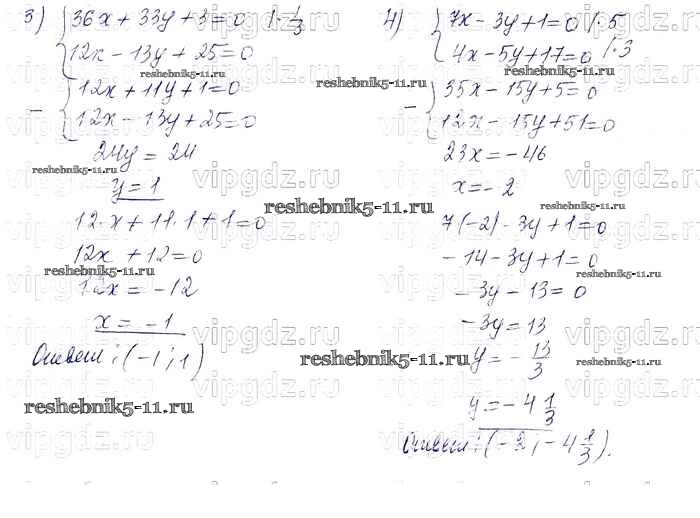 3) { 36x + 33y + 3 = 0 | · 1/3
12x - 13y + 25 = 0
- { 12x + 11y + 1 = 0
12x - 13y + 25 = 0
24y = 24
y = 1
12 · x + 11 · 1 + 1 = 0
12x + 12 = 0
12x = -12
x = -1
Ответ: (-1; 1)
4) { 7x - 3y + 1 = 0 | · 5
4x - 5y + 17 = 0 | · 3
- { 35x - 15y + 5 = 0
12x - 15y + 51 = 0
23x = -46
x = -2
7(-2) - 3y + 1 = 0
-14 - 3y + 1 = 0
-3y - 13 = 0
-3y = 13
y = - 13/3
y = -4 1/3
Ответ: (-2; -4 1/3).
reshebnik5-11.ru
reshebnik5-11.ru
reshebnik5-11.ru
reshebnik5-11.ru
reshebnik5-11.ru
reshebnik5-11.ru
reshebnik5-11.ru
reshebnik5-11.ru
reshebnik5-11.ru
reshebnik5-11.ru
reshebnik5-11.ru
vipgdz.ru